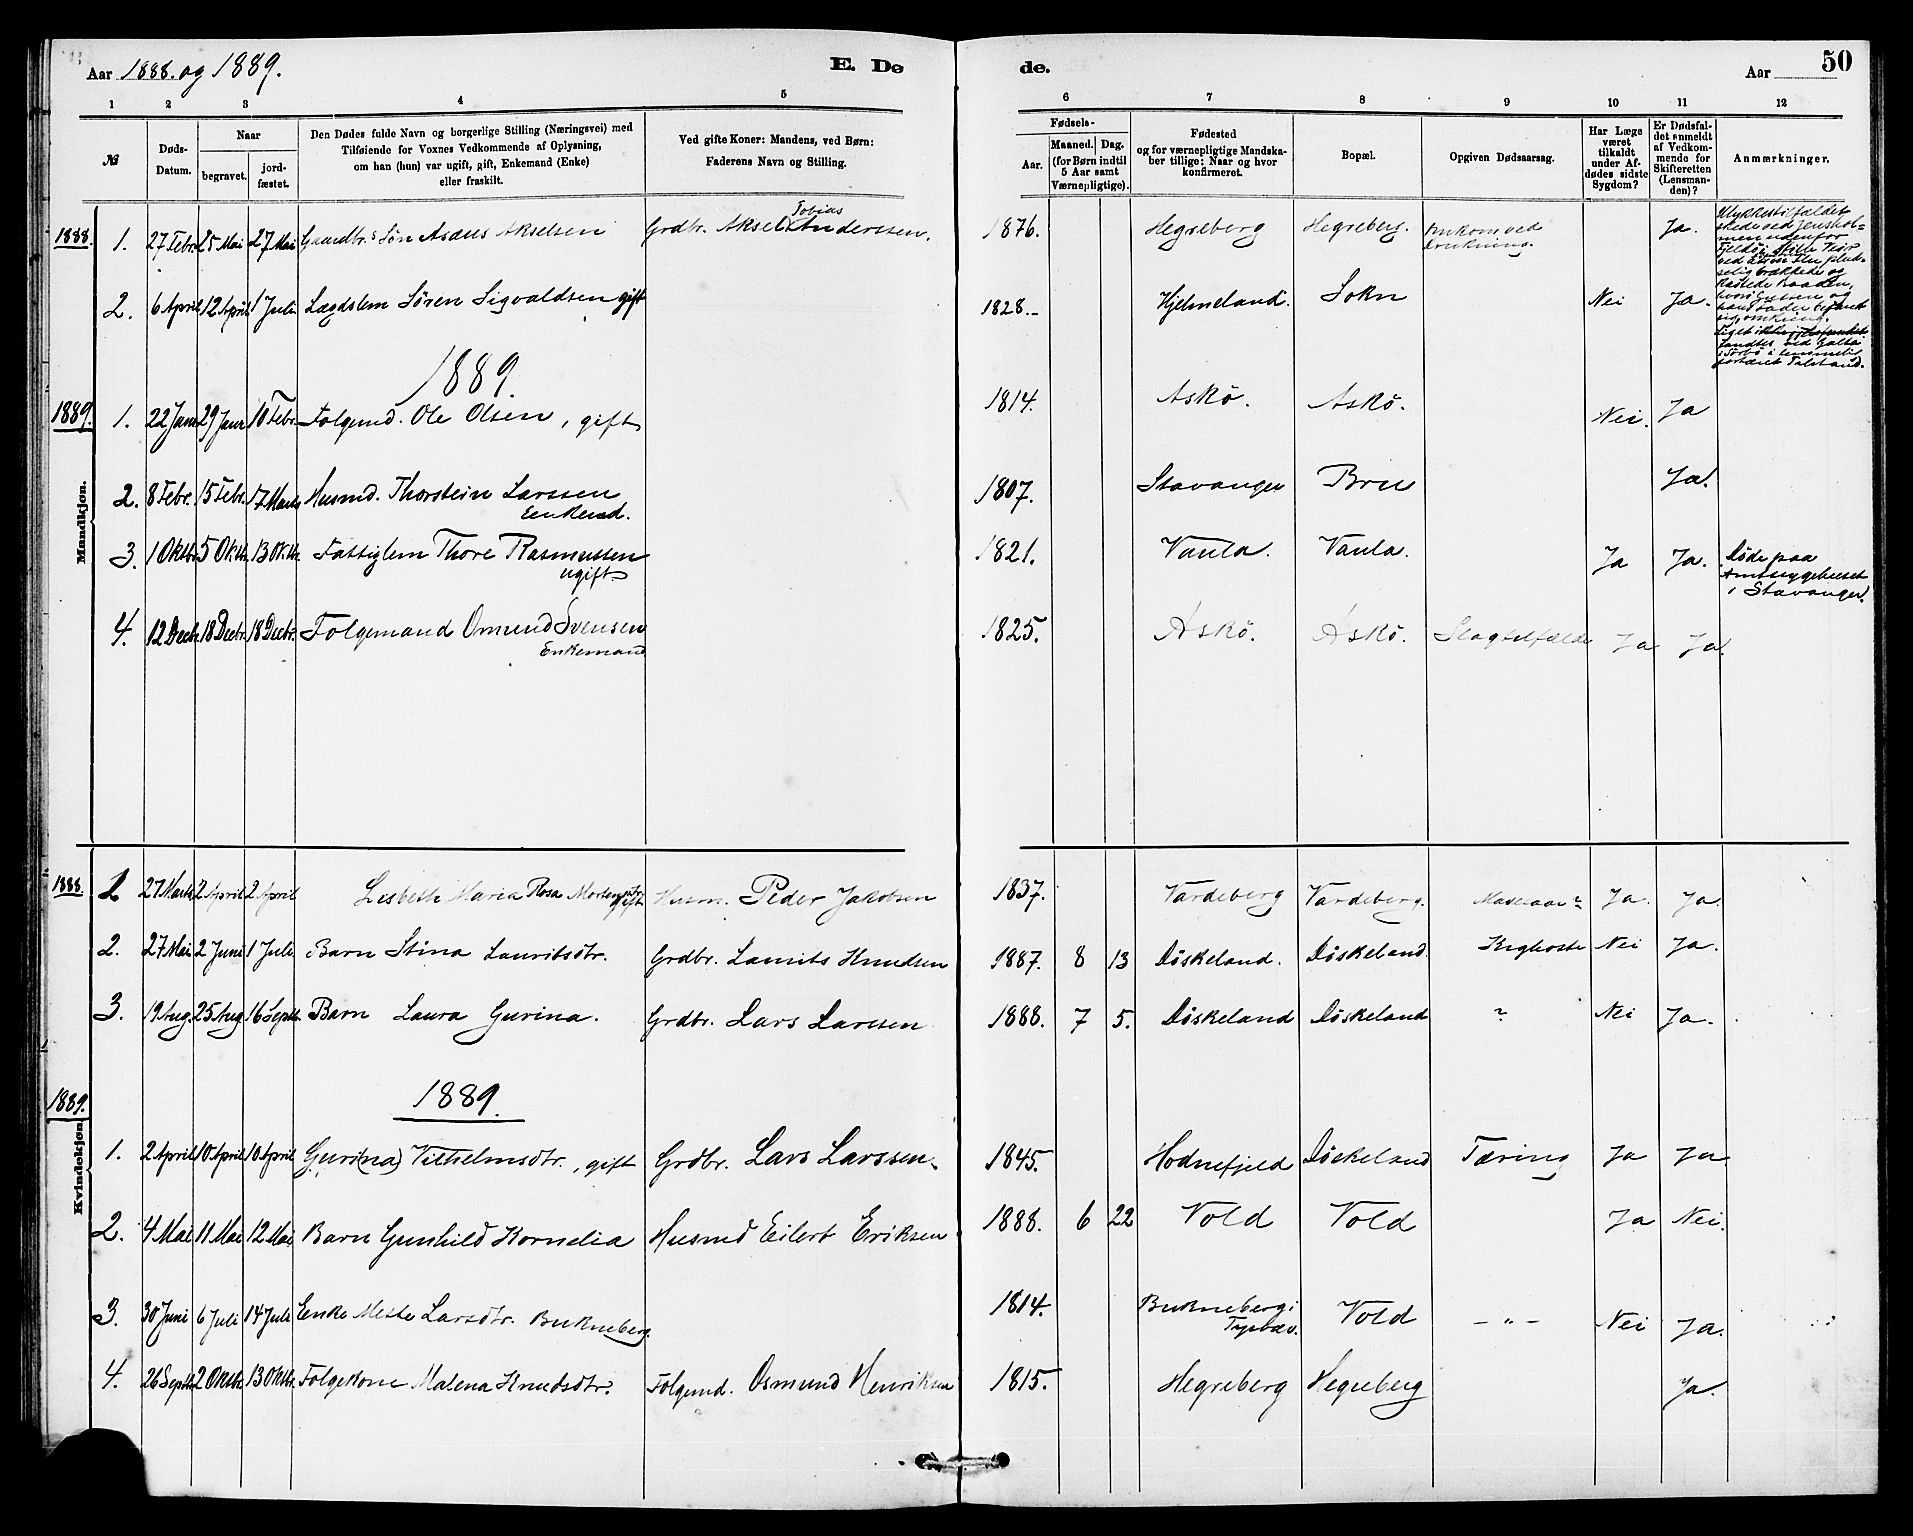 Aar 1888. og 1889.
E. Dø
de.
Aar
50
1 2 3 4 5 6 7 8 9 10 11 12
№
Døds-
Datum.
Naar
begravet.
jord-
fæstet.
Den Dødes fulde Navn og borgerlige Stilling (Næringsvei) med
Tilføiende for Voxnes Vedkommende af Oplysning,
om han (hun) var ugift, gift, Enkemand (Enke)
eller fraskilt.
Ved gifte Koner: Mandens, ved Børn:
Faderens Navn og Stilling.
Fødsels-
Aar.
Maaned.
Dag.
(for Børn indtil
5 Aar samt
Værnepligtige).
Fødested
og for værnepligtige Mandska-
ber tillige: Naar og hvor
konfirmeret.
Bopæl.
Opgiven Dødsaarsag.
Har Læge
været
tilkaldt
under Af-
dødes sidste
Sygdom?
Er Dødsfal-
det anmeldt
af Vedkom-
mende for
Skifteretten
(Lensman-
den)?
Anmærkninger.
Mandkjøn.
1888. 1. 27 Febr. 25 Mai 27 Mai Gaardbr.s Søn Asaus Akselsen Grdbr. Aksel Tobias Anderssen. 1876. Hegreberg Hegreberg. Omkom ved
Drukning. Ja.
Ulykkestilfældet
skede ved Jenshol-
men udenfor
Fjeldøi
2. 6 April 12 April 1 Juli Lægdslem Sören Sigvaldsen gift 1828. Hjelmeland. Sokn Nei Ja.
1889.
1889. 1. 22 Janr 29 Janr 10 Febr. Folgemd. Ole Olsen, gift 1814. Askö. Askö. Nei. Ja
2. 8 Febr. 15 Febr. 17 Marts Husmd. Thorstein Larssen
Enkemd. 1807. Stavanger Bru Ja.
3. 1 Oktbr. 5 Oktb. 13 Oktb. Fattiglem Thore Rasmussen
ugift. 1821. Vaula. Vaula. Ja Ja. Døde paa
Amtssygehuset
i Stavanger.
4. 12 Decbr. 18 Decbr. 18 Decbr. Folgemand Omund Svensen
Enkemand 1825. Askö. Askö. Slagtilfælde Ja Ja.
Kvindekjøn.
1888. 1 27 Marts 2 April 2 April Lisbeth Maria Rosa Mortensdtr.
gift Husm. Peder Jakobsen 1837. Vardeberg Vardeberg. Ja. Ja.
2. 27 Mai 2 Juni 1 Juli Barn Stina Lauritsdtr. Grdbr. Laurits Knudsen 1887. 8 13 Döskeland. Döskeland. Kighoste Nei Ja.
3. 19 Aug. 25 Aug 16 Septb. Barn Laura Gurina. Grdbr. Lars Larssen 1888. 7 5. Döskeland Döskeland ? Nei Ja.
1889.
1889. 1. 2 April 10 April 10 April Guri(na) Vilhelmsdtr., gift Grdbr. Lars Larssen. 1845. Hodnefjeld Döskeland Tæring Ja Ja
2. 4 Mai 11 Mai 12 Mai Barn Gunhild Kornelia Husmd Eilert Eriksen 1888. 6 22 Vold Vold Ja Nei.
3. 30 Juni 6 Juli 14 Juli Enke Mette Larsdtr. Bukneberg. 1814. Bukneberg i
Tysvær. Vold – „ – Nei Ja.
4. 26 Septb. 2 Oktbr. 13 Oktbr. Folgekone Malena Knudsdtr. Folgemd. Osmund Henriksen 1815. Hegreberg Hegreberg Ja.